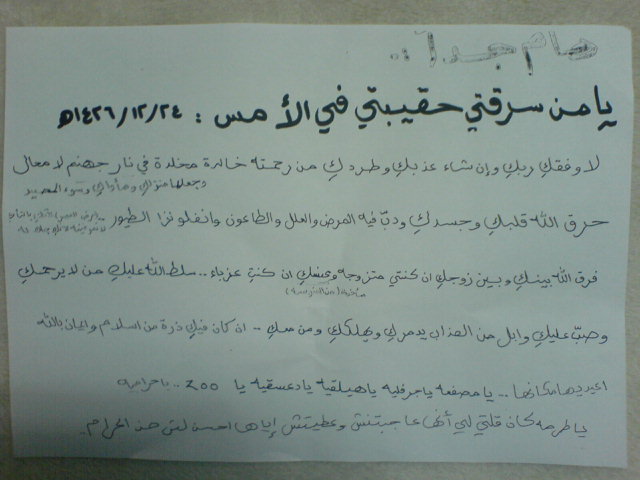 هام جداً ..
يا من سرقتي حقيبتي في الأمس : ١٤٢٦/١٢/٢٤هـ
لا وفقكِ ربكِ وإن شاء عذبكِ وطردكِ من رحمته خالدة مخلدة في نار جهنم لا محال
وجعلها منزلكِ ومأواكِ وسوء المصير
حرق الله قلبكِ وجسدكِ ودبّ فيه المرض والعلل والطاعون وانفلونزا الطيور ..
فرق الله بينكِ وبين زوجكِ ان كنتي متزوجه ان كنتِ عزباء .. سلط الله عليكِ من لا يرحمكِ
وصبّ عليكِ وابل من العذاب يدمركِ ويهلككِ ومن معكِ .. ان كان فيكِ ذرة من اسلام وايمان بالله
اعيديها مكانها .. يا مصفعه يا جرفليه يا هيلقيه يا دعسقيه يا ٤٥٥ .. يا حراميه
يا طرمه كان قلتي لي أنها عاجبتنش وعطيتش إياها احسن لش من الحرام ..